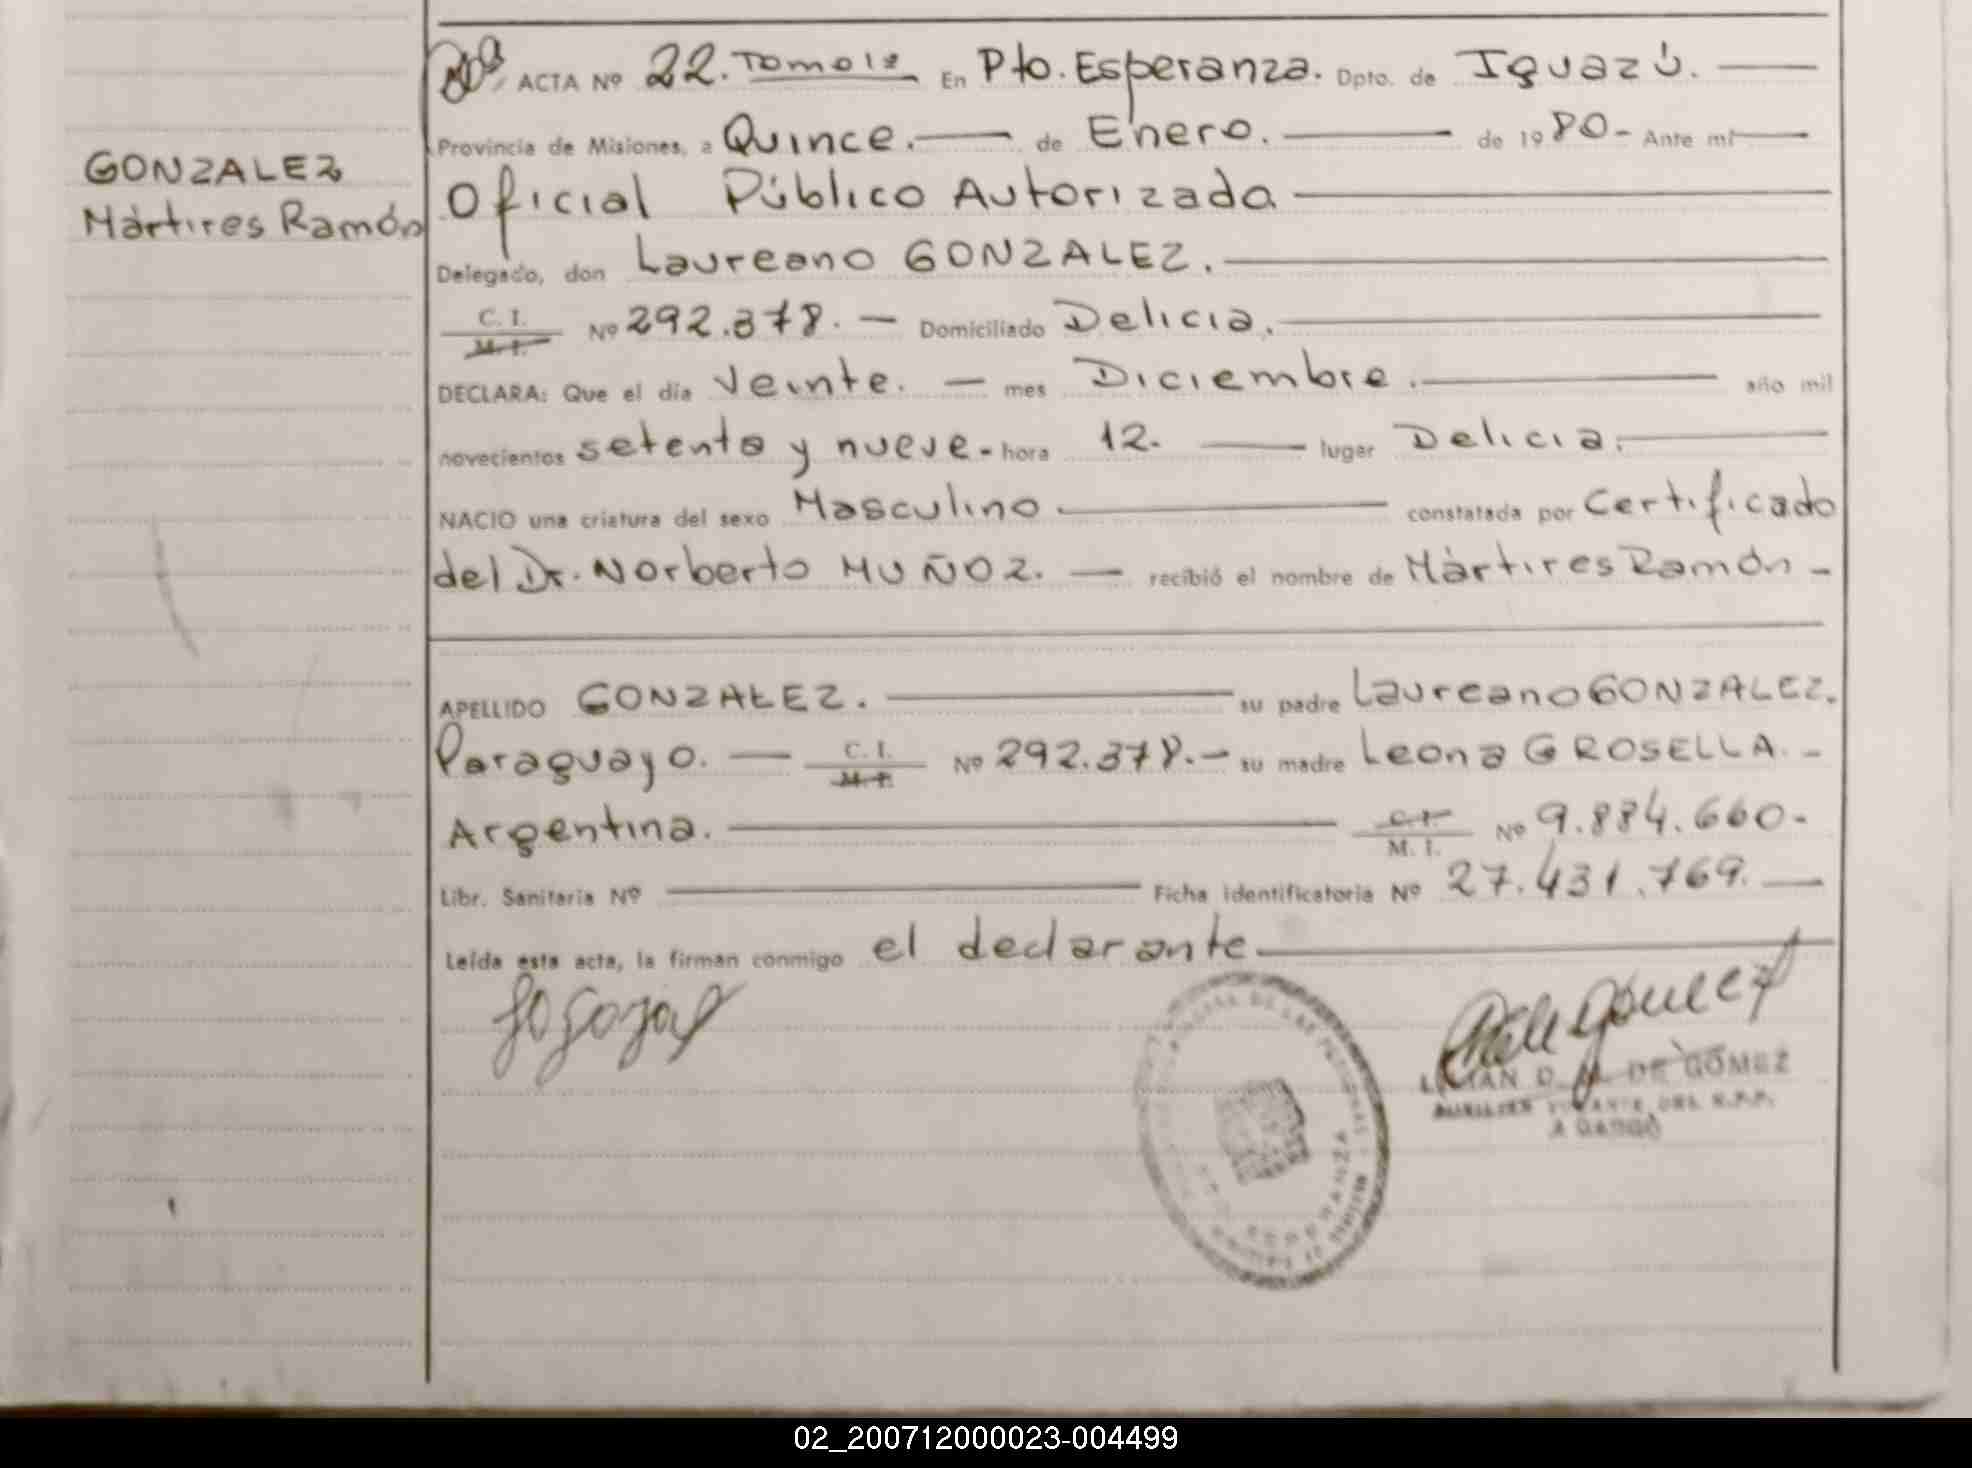 ACTA Nº 22. Tomo 1º En Pto. Esperanza. Dpto. de Iguazú.
Provincia de Misiones, a Quince. de Enero. de 1980- Ante mí
GONZALEZ
Mártires Ramón
Oficial Público Autorizada
Delegado, don Laureano GONZALEZ.
C. I. M. I. Nº 292.378. Domiciliado Delicia.
DECLARA: Que el día Veinte. mes Diciembre. año mil
novecientos setenta y nueve- hora 12. lugar Delicia.
NACIO una criatura del sexo Masculino constatada por Certificado
del Dr. Norberto MUÑOZ. recibió el nombre de Mártires Ramón
APELLIDO GONZALEZ. su padre Laureano GONZALEZ.
Paraguayo. C. I. M. I. Nº 292.378.- su madre Leona GROSELLA.-
Argentina. C. I. M. I. Nº 9.884.660-
Libr. Sanitaria Nº Ficha identificatoria Nº 27.431.769.
Leída esta acta, la firman conmigo el declarante
DE GOMEZ
A CARGO
ESPERANZA
02_200712000023-004499